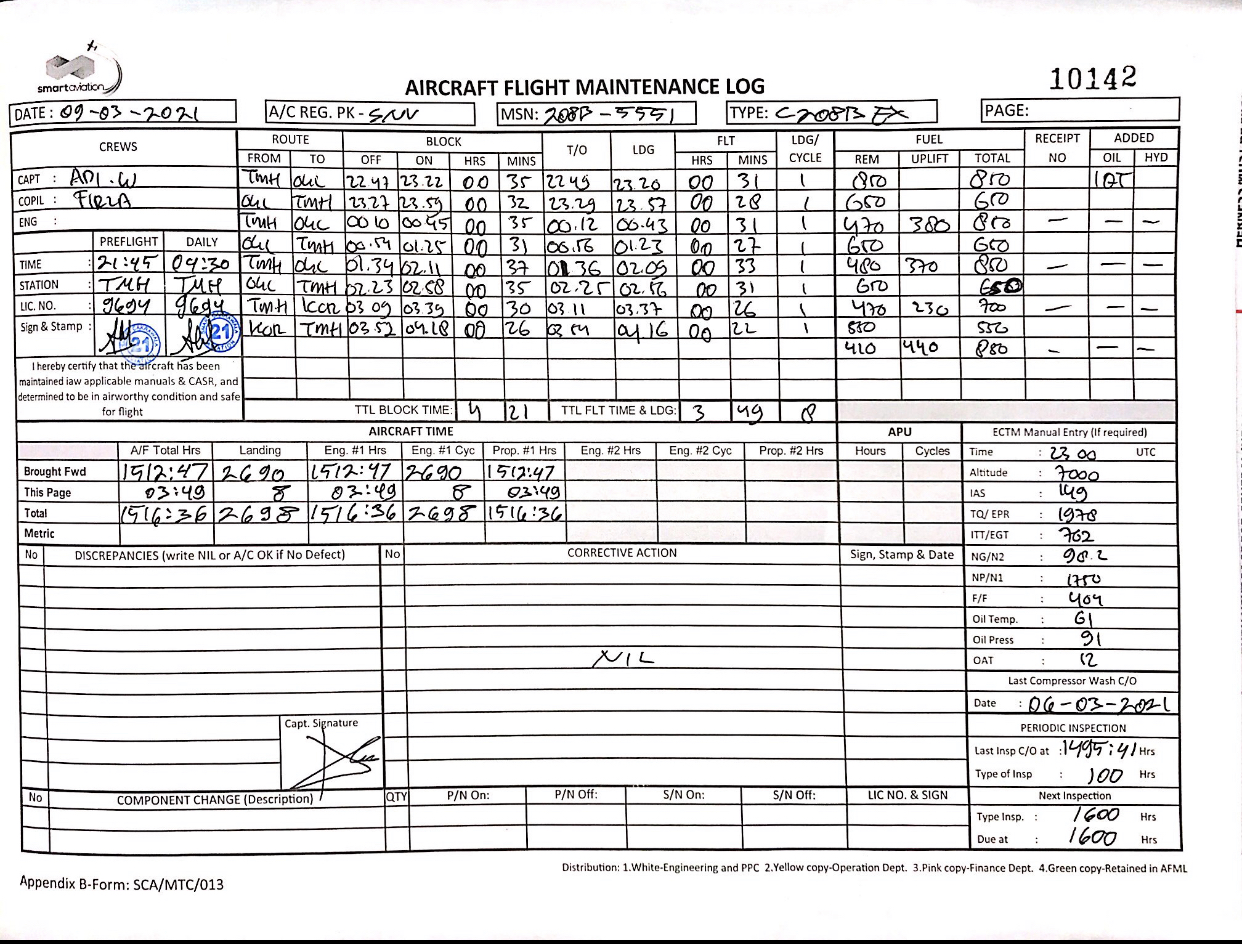 smartaviation
AIRCRAFT FLIGHT MAINTENANCE LOG
10142
DATE : 09-03-2021 A/C REG. PK - SNV MSN: 208B-5551 TYPE: C208B EX PAGE:
CREWS ROUTE BLOCK T/O LDG FLT LDG/CYCLE FUEL RECEIPT NO ADDED
FROM TO OFF ON HRS MINS HRS MINS REM UPLIFT TOTAL OIL HYD
CAPT : ADI.W TMH 22.47 23.22 00 35 22.49 23.20 00 31 1 850 850
COPIL : FIRZA TMH 23.27 23.59 00 32 23.29 23.57 00 28 1 650 650
ENG : TMH 00.10 00.45 00 35 00.12 00.43 00 31 1 470 380 850 — — —
PREFLIGHT DAILY TMH 00.54 01.25 00 31 00.56 01.23 00 27 1 650 650
TIME : 21:45 04:30 TMH 01.34 02.11 00 37 01.36 02.09 00 33 1 480 370 850 — — —
STATION : TMH TMH TMH 02.23 02.58 00 35 02.25 02.56 00 31 1 650 650
LIC. NO. : 9694 9694 TMH 03.09 03.39 00 30 03.11 03.37 00 26 1 470 230 700 — — —
Sign & Stamp : 21 21 TMH 03.52 04.18 00 26 03.54 04.16 00 22 1 550 550
410 440 850 — — —
I hereby certify that the aircraft has been
maintained iaw applicable manuals & CASR, and
determined to be in airworthy condition and safe
for flight
TTL BLOCK TIME: 4 21 TTL FLT TIME & LDG: 3 49 8
AIRCRAFT TIME APU ECTM Manual Entry (If required)
A/F Total Hrs Landing Eng. #1 Hrs Eng. #1 Cyc Prop. #1 Hrs Eng. #2 Hrs Eng. #2 Cyc Prop. #2 Hrs Hours Cycles
Brought Fwd 1512:47 2690 1512:47 2690 1512:47
This Page 03:49 8 03:49 8 03:49
Total 1516:36 2698 1516:36 2698 1516:36
Metric
Time : 23 00 UTC
Altitude : 7000
IAS : 149
TQ/ EPR : 1978
ITT/EGT : 762
NG/N2 : 98.2
NP/N1 : 1750
F/F : 404
Oil Temp. : 61
Oil Press : 91
OAT : 12
Last Compressor Wash C/O
Date : 06-03-2021
PERIODIC INSPECTION
Last Insp C/O at : 1495:41 Hrs
Type of Insp : 100 Hrs
Next Inspection
Type Insp. : 1600 Hrs
Due at : 1600 Hrs
No DISCREPANCIES (write NIL or A/C OK if No Defect) No CORRECTIVE ACTION Sign, Stamp & Date
NIL
Capt. Signature
No COMPONENT CHANGE (Description) QTY P/N On: P/N Off: S/N On: S/N Off: LIC NO. & SIGN
Distribution: 1.White-Engineering and PPC 2.Yellow copy-Operation Dept. 3.Pink copy-Finance Dept. 4.Green copy-Retained in AFML
Appendix B-Form: SCA/MTC/013